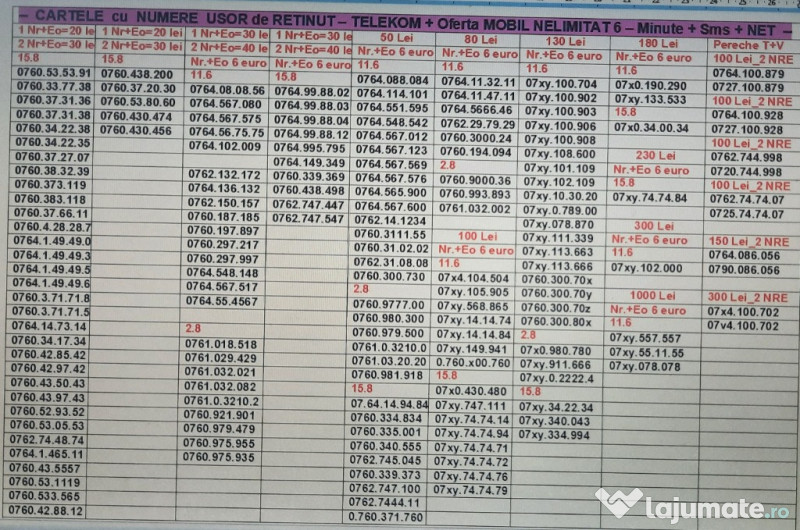 – CARTELE cu NUMERE USOR de RETINUT – TELEKOM + Oferta MOBIL NELIMITAT 6 – Minute + Sms + NET –
1 Nr+Eo=20 lei
2 Nr+Eo=30 lei
15.8
0760.53.53.91
0760.33.77.38
0760.37.31.36
0760.37.31.38
0760.34.22.38
0760.34.22.35
0760.37.27.07
0760.38.32.39
0760.373.119
0760.383.118
0760.37.66.11
0760.4.28.28.7
0764.1.49.49.0
0764.1.49.49.3
0764.1.49.49.5
0764.1.49.49.6
0760.3.71.71.8
0760.3.71.71.5
0764.14.73.14
0760.34.17.34
0760.42.85.42
0760.42.97.42
0760.43.50.43
0760.43.97.43
0760.52.93.52
0760.53.05.53
0762.74.48.74
0764.1.465.11
0760.43.5557
0760.53.1119
0760.533.565
0760.42.88.12
1 Nr+Eo=20 lei
2 Nr+Eo=30 lei
15.8
0760.438.200
0760.37.20.30
0760.53.80.60
0760.430.474
0760.430.456
1 Nr+Eo=30 lei
2 Nr+Eo=40 lei
11.6
0764.08.08.56
0764.567.080
0764.567.575
0764.56.75.75
0764.102.009
0762.132.172
0764.136.132
0762.150.157
0760.187.185
0760.197.897
0760.297.217
0760.297.997
0764.548.148
0764.567.517
0764.55.4567
2.8
0761.018.518
0761.029.429
0761.032.021
0761.032.082
0761.0.3210.2
0760.921.901
0760.979.479
0760.975.955
0760.975.935
1 Nr+Eo=30 lei
2 Nr+Eo=40 lei
15.8
0764.99.88.02
0764.99.88.03
0764.99.88.04
0764.99.88.12
0764.995.795
0764.149.349
0760.339.369
0760.438.498
0762.747.447
0762.747.547
50 Lei
Nr.+Eo 6 euro
11.6
0764.088.084
0764.114.101
0764.551.595
0764.548.542
0764.567.012
0764.567.123
0764.567.569
0764.567.576
0764.565.900
0764.567.600
0762.14.1234
0760.3111.55
0760.31.02.02
0762.31.08.08
0760.300.730
2.8
0760.9777.00
0760.980.300
0760.979.500
0761.0.3210.0
0761.03.20.20
0760.981.918
15.8
07.64.14.94.84
0760.334.834
0760.335.001
0760.340.555
0762.745.045
0760.339.373
0762.747.100
0762.7444.11
0.760.371.760
80 Lei
Nr.+Eo 6 euro
11.6
0764.11.32.11
0764.11.47.11
0764.5666.46
0762.29.79.29
0760.3000.24
0760.194.094
2.8
0760.9000.36
0760.993.893
0761.032.002
100 Lei
Nr.+Eo 6 euro
11.6
07x4.104.504
07xy.105.905
07xy.568.865
07xy.14.14.74
07xy.14.14.84
07xy.149.941
0.760.x00.760
15.8
07x0.430.480
07xy.747.111
07xy.74.74.14
07xy.74.74.94
07xy.74.74.71
07xy.74.74.72
07xy.74.74.76
07xy.74.74.79
130 Lei
Nr.+Eo 6 euro
11.6
07xy.100.704
07xy.100.902
07xy.100.903
07xy.100.906
07xy.100.908
07xy.108.600
07xy.101.109
07xy.102.109
07xy.10.30.20
07xy.0.789.00
07xy.078.870
07xy.111.339
07xy.113.663
07xy.113.666
0760.300.70x
0760.300.70y
0760.300.70z
0760.300.80x
2.8
07x0.980.780
07xy.911.666
07xy.0.2222.4
15.8
07xy.34.22.34
07xy.340.043
07xy.334.994
180 Lei
Nr.+Eo 6 euro
11.6
07x0.190.290
07xy.133.533
15.8
07x0.34.00.34
230 Lei
Nr.+Eo 6 euro
15.8
07xy.74.74.84
300 Lei
Nr.+Eo 6 euro
11.6
07xy.102.000
1000 Lei
Nr.+Eo 6 euro
11.6
07xy.557.557
07xy.55.11.55
07xy.078.078
Pereche T+V
100 Lei_2 NRE
0764.100.879
0727.100.879
100 Lei_2 NRE
0764.100.928
0727.100.928
100 Lei_2 NRE
0762.744.998
0720.744.998
100 Lei_2 NRE
0762.74.74.07
0725.74.74.07
150 Lei_2 NRE
0764.086.056
0790.086.056
300 Lei_2 NRE
07x4.100.702
07v4.100.702
lajumate.ro